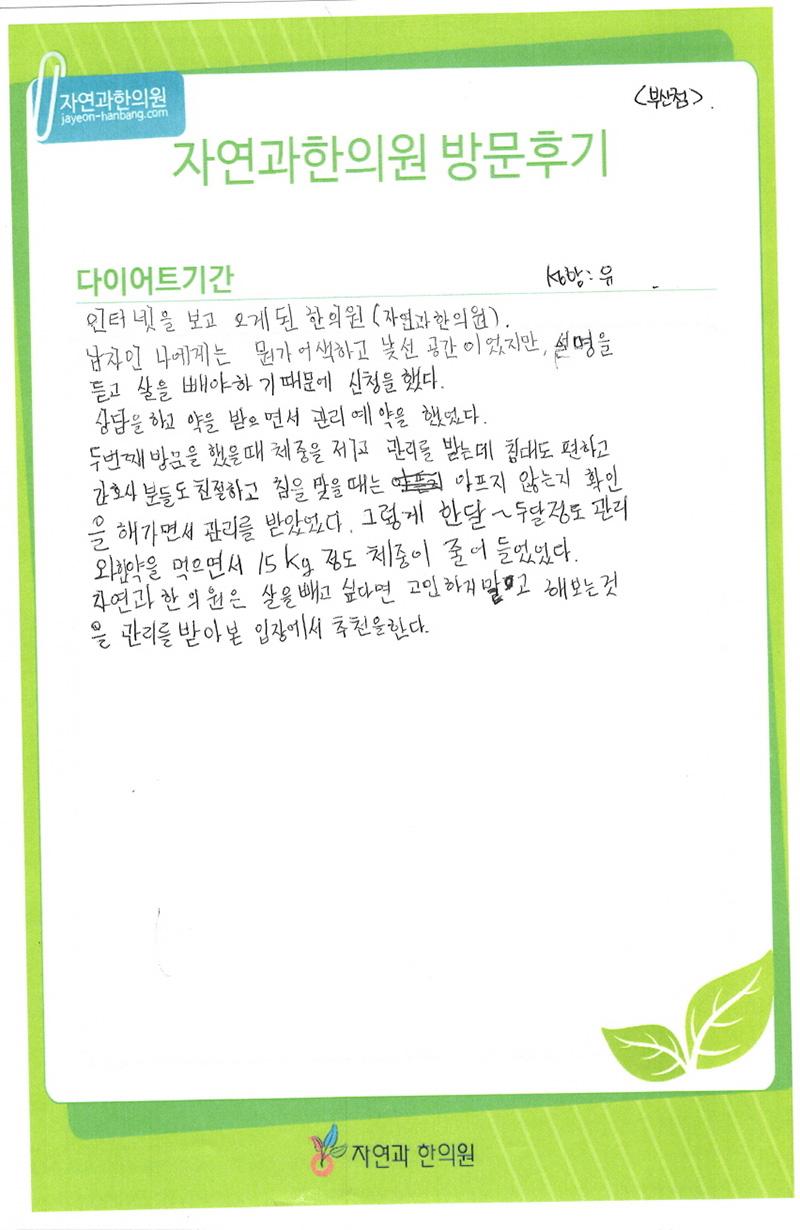 자연과한의원
jayeon-hanbang.com
<부산점>.
자연과한의원 방문후기
다이어트기간
성함: 유
인터넷을 보고 오게 된 한의원(자연과한의원).
남자인 나에게는 뭔가 어색하고 낯선 공간이었지만, 설명을
듣고 살을 빼야하기때문에 신청을 했다.
상담을하고 약을 받으면서 관리예약을 했었다.
두번째방문을 했을때 체중을 재고 관리를 받는데 침대도 편하고
간호사 분들도 친절하고 침을 맞을때는 아프지 않는지 확인
을 해가면서 관리를 받았었다. 그렇게 한달~두달정도 관리
와 한약을 먹으면서 15kg 정도 체중이 줄어 들었었다.
자연과한의원은 살을빼고 싶다면 고민하지말고 해보는것
을 관리를받아본 입장에서 추천을한다.
자연과 한의원